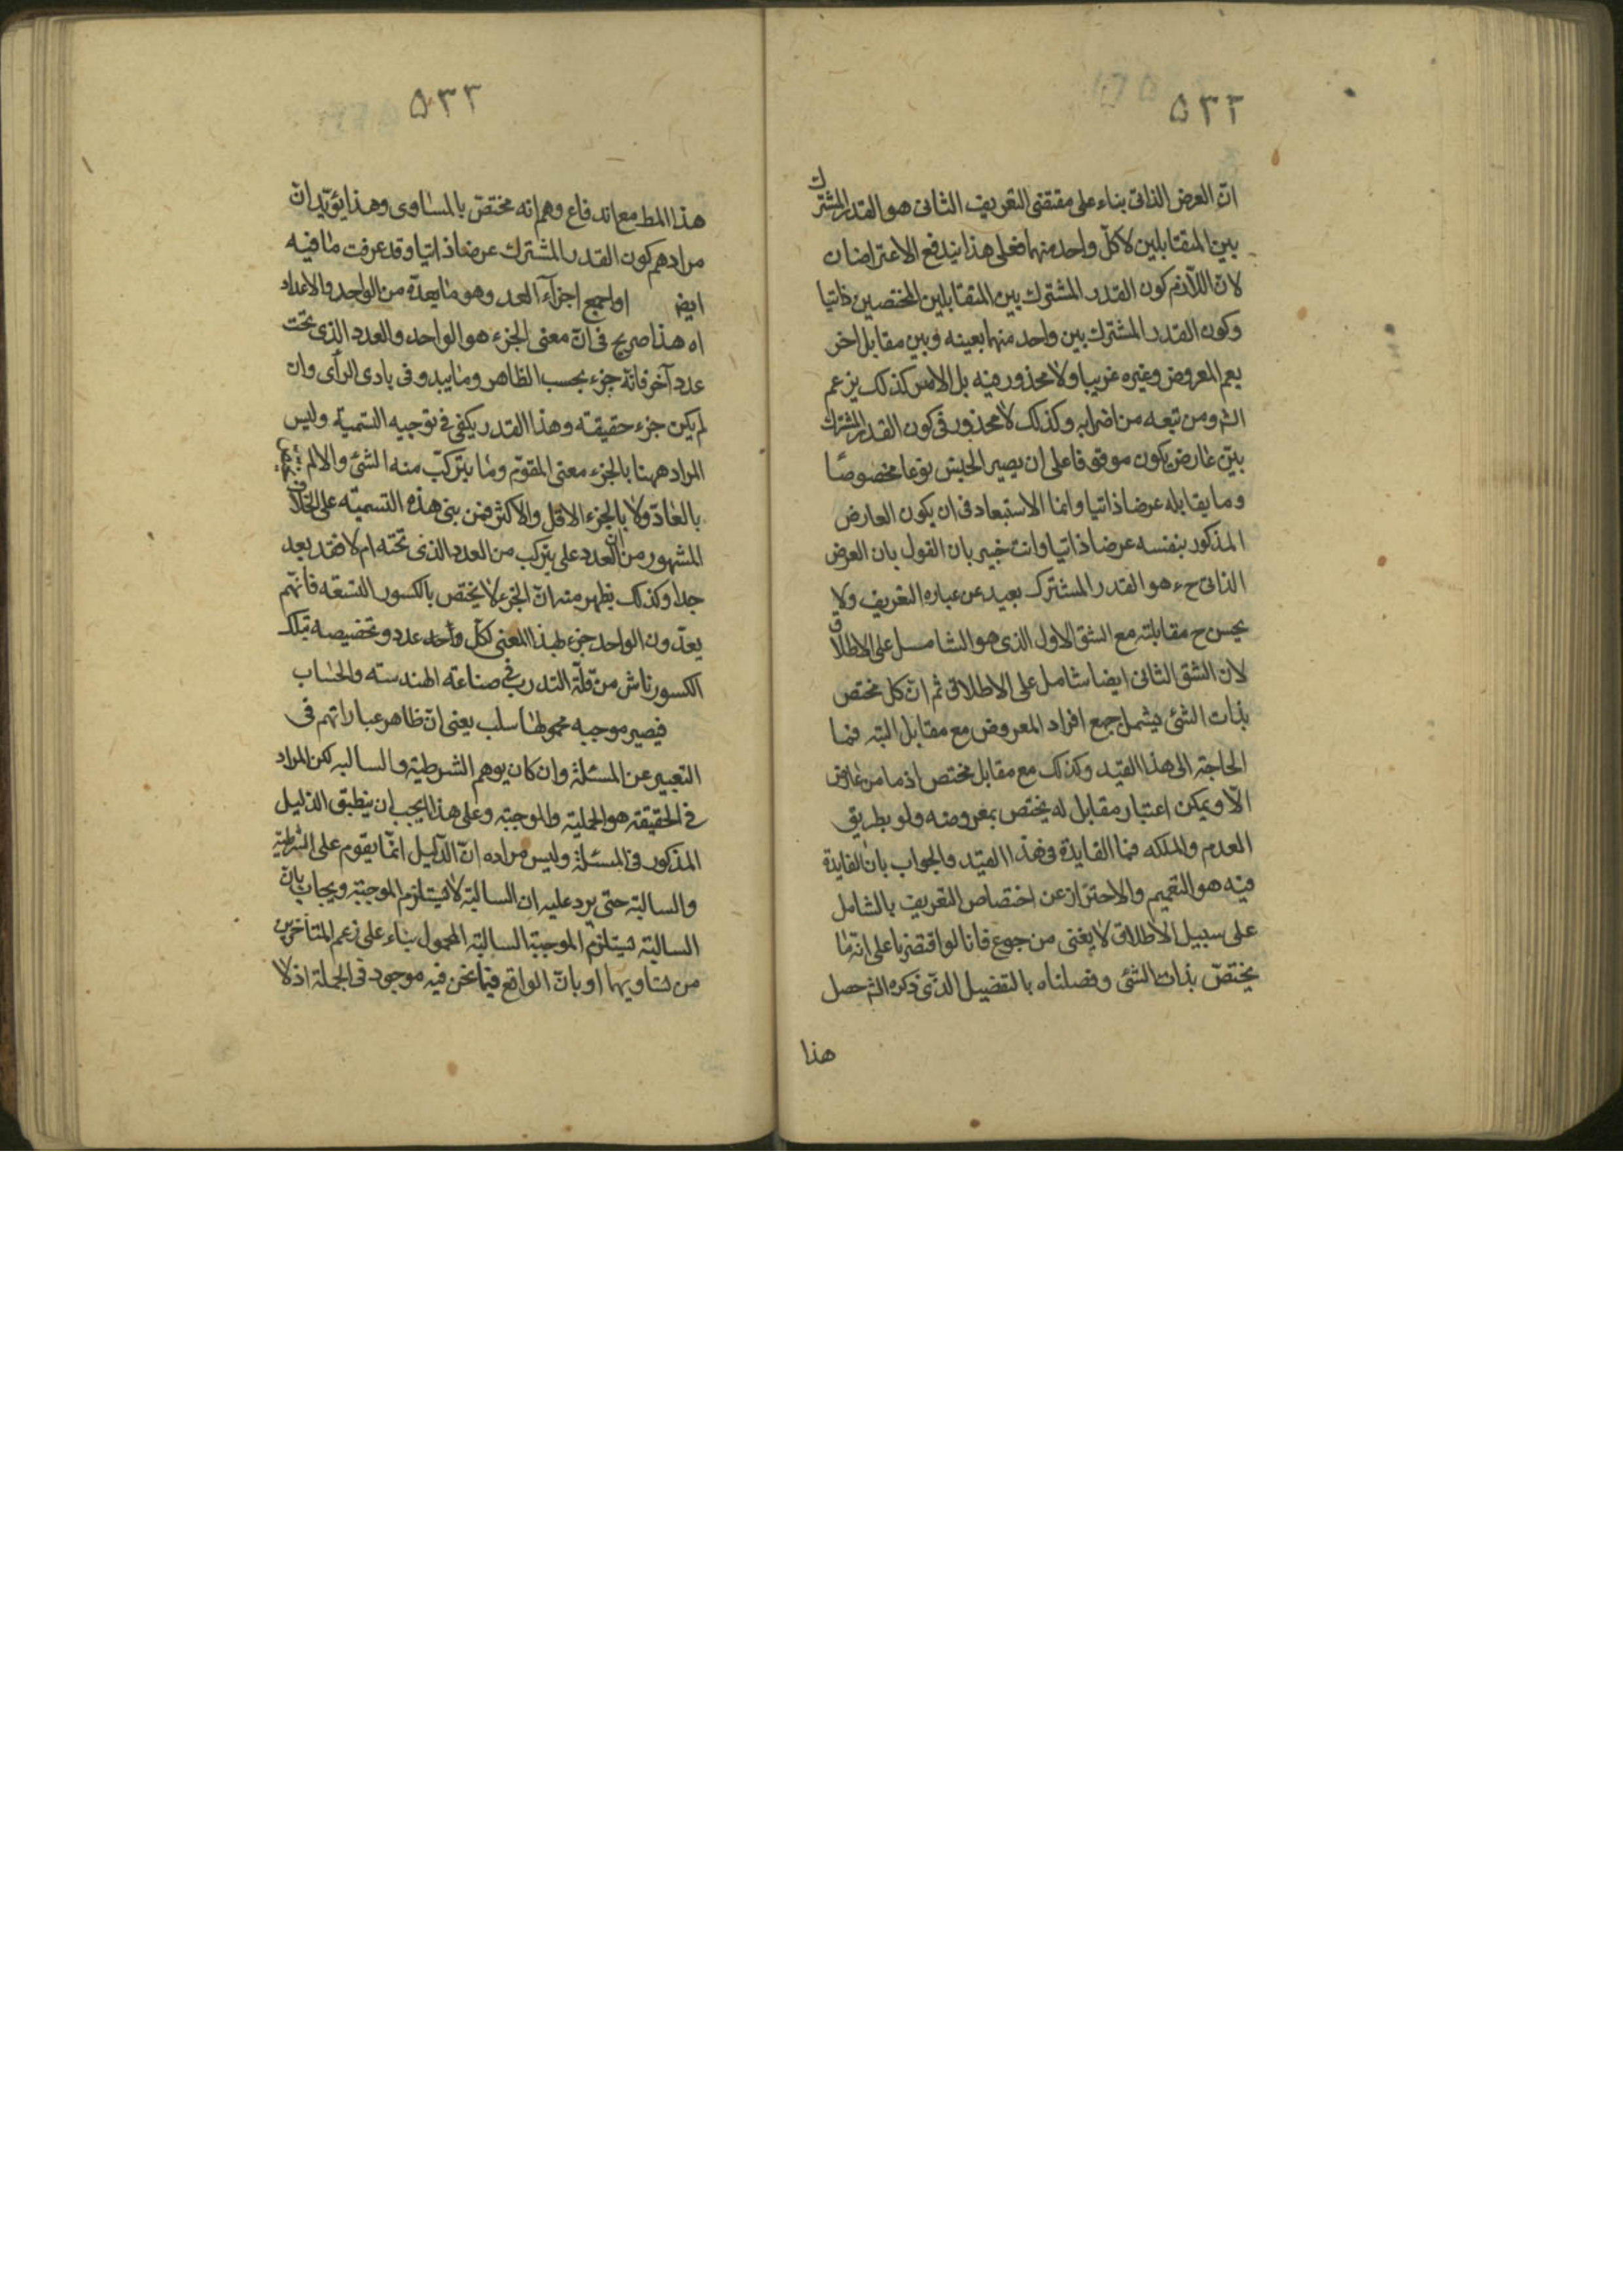 ٥٣٢
انّ العرض الذاتى بناء على مقتضى التعريف الثانى هو القدر المشترك
بين المتقابلين لا كلّ واحد منهما فعلى هذا يندفع الاعتراضان
لانّ اللازم كون القدر المشترك بين المتقابلين المختصين ذاتيا
وكون القدر المشترك بين واحد منهما بعينه وبين مقابل اخر
يعم المعروض وغيره غريبا ولا محذور فيه بل الامر كذلك يزعم
الش ومن تبعه من اضرابه وكذلك لا محذور فى كون القدر المشترك
بين عارض يكون موقوفا على ان يصير الجنس نوعا مخصوصًا
وما يقابله عرضا ذاتيا وانما الاستبعاد فى ان يكون العارض
المذكور بنفسه عرضا ذاتيا وانت خبير بان القول بان العرض
الذاتى ح هو القدر المشترك بعيد عن عباره التعريف ولا
يحسن ح مقابلته مع الشق الاول الذى هو الشامل على الاطلاق
لان الشق الثانى ايضا شامل على الاطلاق ثم ان كل مختص
بذات الشئ يشمل جمع افراد المعروض مع مقابل البته فما
الحاجة الى هذا القيد وكذلك مع مقابل مختص اذ ما من عارض
الّا ويمكن اعتبار مقابل له يختص بمعروضه ولو بطريق
العدم والملكه فما الفايدة فى هذا القيد والجواب بان الفايدة
فيه هو التعميم والاحتراز عن اختصاص التعريف بالشامل
على سبيل الاطلاق لا يغنى من جوع فانا لو اقتصرنا على انه ما
يختصّ بذات الشئ وفصلناه بالتفصيل الذى ذكره الش حصل
هذا
٥٣٣
هذا المط مع اندفاع وهم انه مختصّ بالمساوى وهذا يؤيّد انّ
مرادهم كون القدر المشترك عرضا ذاتيا وقد عرفت ما فيه
ايض اواجمع اجزآء العدد وهو ما يعدّه من الواحد والاعداد
اه هذا صريح فى انّ معنى الجزء هو الواحد والعدد الذى تحت
عدد آخر فانّه جزء بحسب الظاهر وما يبدو فى بادى الرأى وان
لم يكن جزء حقيقة وهذا القدر يكفى فى توجيه التسمية وليس
المراد ههنا بالجزء معنى المقوّم وما يتركّب منه الشئ والا لم
بالعادّ ولا بالجزء الاقل والاكثر فمن بنى هذه التسمية على الخلاف
المشهور من ان العدد على يتركب من العدد الذى تحته ام لا فقد بعد
جدا وكذلك يظهر منه انّ الجزء لا يختص بالكسور التسعة فانّهم
يعدّون الواحد جزء بهذا المعنى لكلّ واحد عدد وتخصيصه بتلك
الكسور ناش من قلّة التدرب فى صناعة الهندسة والحساب
فيصير موجبه محمولها سلب يعنى انّ ظاهر عباراتهم فى
التعبير عن المسئلة وان كان يوهم الشرطية والسالبه لكن المراد
فى الحقيقة هو الحملية والموجبة وعلى هذا يجب ان ينطبق الدليل
المذكور فى المسئلة وليس مراده انّ الدّليل انّما يقوم على الشرطية
والسالبة حتى يرد عليه ان السالبة لا يستلزم الموجبة ويجاب بانّ
السالبة يستلزم الموجبة السالبة المحمول بناء على زعم المتأخّرين
من تساويهما او بانّ الواقع فيما نحن فيه موجود فى الجملة اذ لا